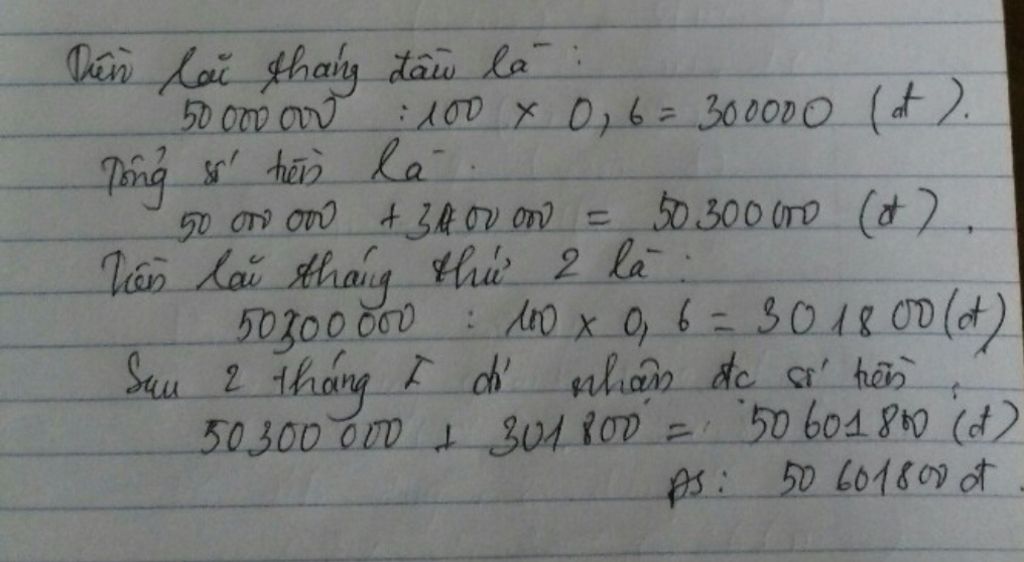 Tiền lãi tháng đầu là :
50 000 000 : 100 x 0,6 = 300000 (đ).
Tổng số tiền là .
50 000 000 + 300 000 = 50 300 000 (đ).
Tiền lãi tháng thứ 2 là :
50300 000 : 100 x 0,6 = 301800 (đ)
Sau 2 tháng đó nhận đc số tiền :
50300 000 + 301 800 = 50 601 800 (đ)
ĐS : 50 601800 đ.